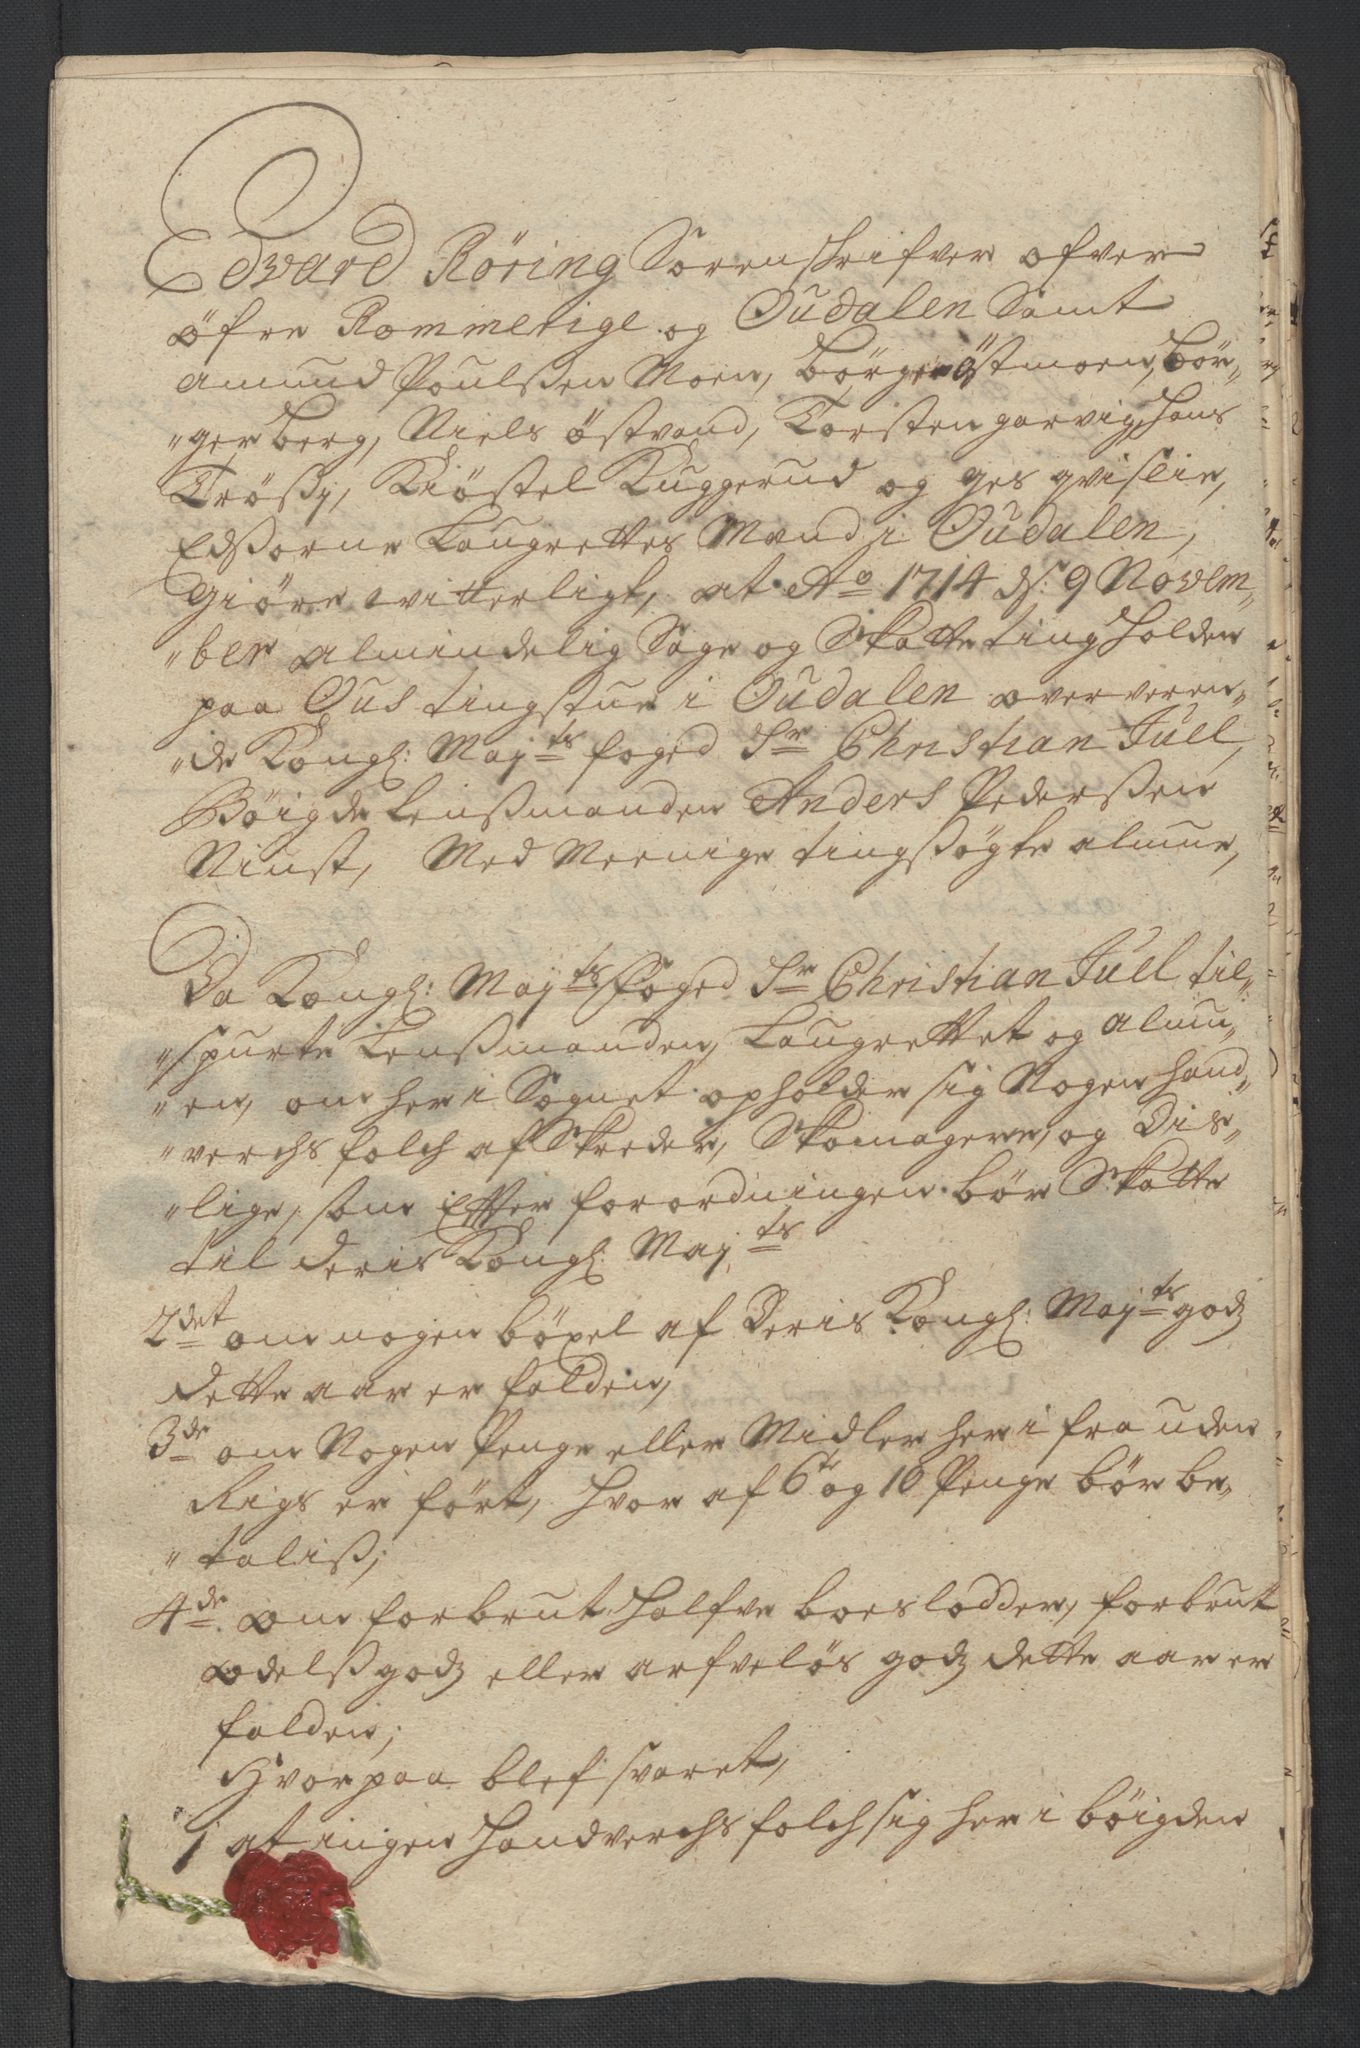 Edvard Röring Sorenschrifver ofver
öfre Rommerige og Oudalen Samt
Amund Poulsßen Moen, Börger Östmoen, Bör„
„ger Berg, Niels Östvand, Torsten garvig, Hans
Trößy, Kiöstel Kuggerud og
Edßorne Laugrettes Mænd i Oudalen,
Giöre vitterligt, at Ao 1714 d: 9 Novem„
„ber almindelig Sage og Skatteting Holden
paa Ous tingstue i Oudalen oververen„
„de Kongl: Mayts foged Sr Christian Juel,
Böigde Lensßmanden Anders Pedersßen
Ninst, Med Meenige tingsßögte almue,
Da Kongl: Mayts Foged Sr Christian Juel til„
„spurte Lensßmanden, Laugrettet og almu„
„en, om her i Sognet opholder sig Nogen hand„
„verchs folch af Skreder, Skomagere, og Dis„
„lige, som Efter forordningen bör Skatte
til Deris Kongl: Mayts
2det om nogen böxel af Deris Kongl: Mayts godz
dette aar er falden,
3de om Nogen Penge eller Midler her i fra uden
Rigs er fört, hvor af 6te og 10 Penge bör be„
„taliß;
4de om forbrut Halfve boeslodder, forbrut
odelsßgodz eller arfvelös godz dette aar er
falden;
Hvorpaa blef svaret,
1 at ingen Handverchs folch sig her i böigden